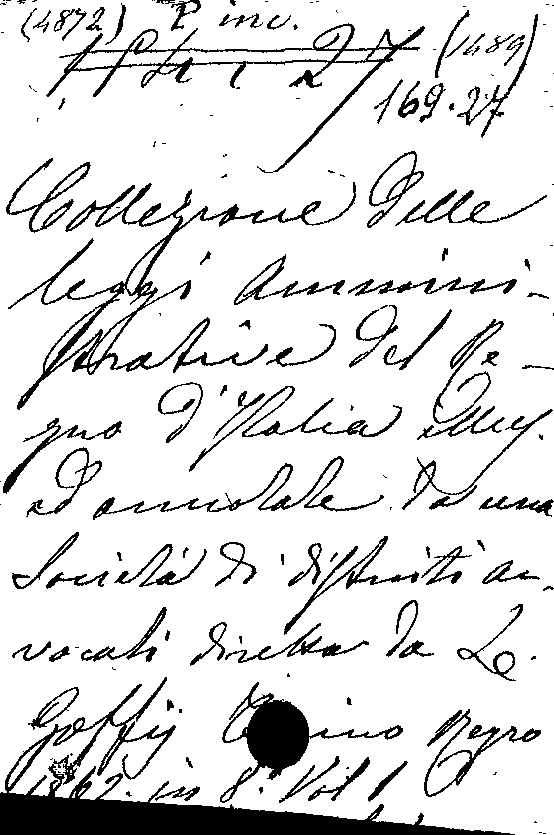 (4872) P inc.
(1489)
169.27
Collezione delle
leggi Ammini-
strative del Re-
gno d'Italia
ed annotate da una
Società di distinti av-
vocati diretta da L.
Goffij no Negro
1862. in 8.° Vol 1